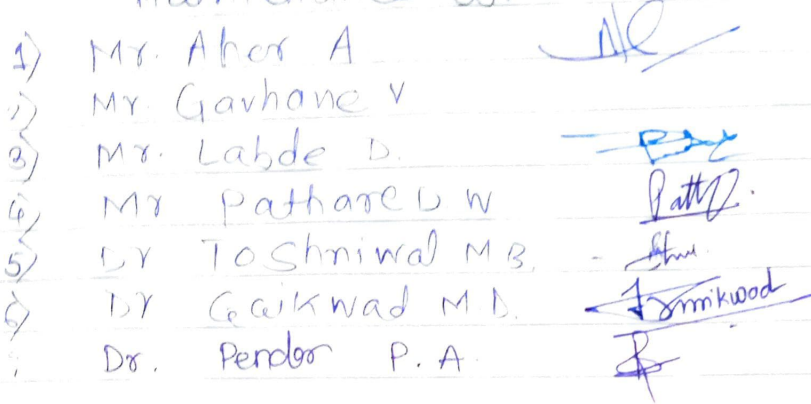 1) Mr. Aher A
2) Mr. Gavhane V
3) Mr. Labde D.
4) Mr Pathare D W
5) Dr Toshniwal M B.
6) Dr Gaikwad M D.
Dr. Pendor P. A.